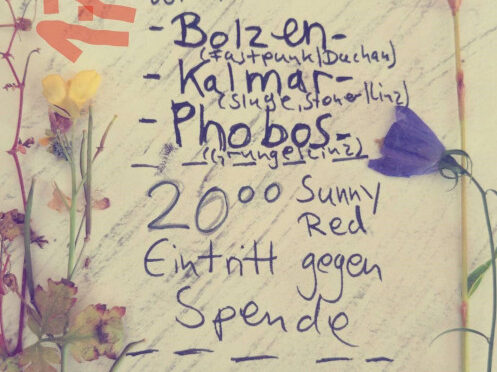 - Bolzen -
(Fastpunk/Dachau)
- Kalmar -
(Sludge, Stoner/Linz)
- Phobos -
(Grunge/Linz)
20⁰⁰ Sunny
Red
Eintritt gegen
Spende